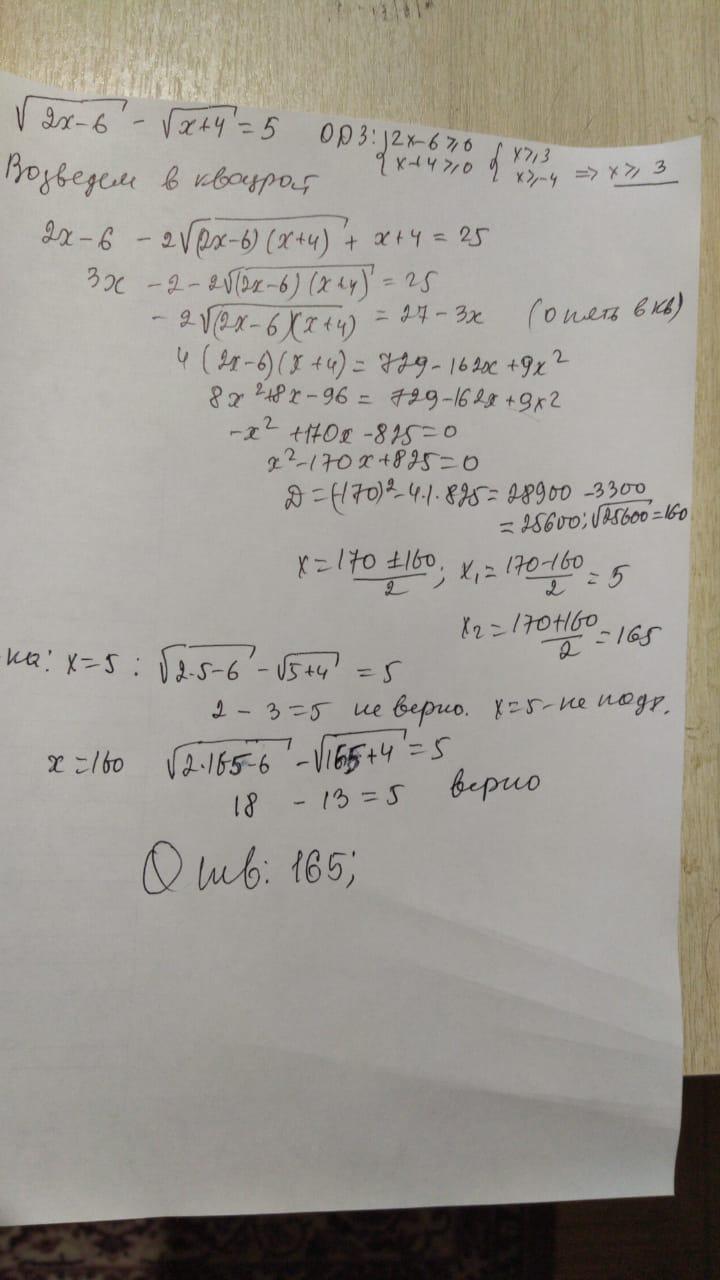 √(2x-6) - √(x+4) = 5   ОДЗ: {2x-6 ≥ 0   {x ≥ 3
{x+4 ≥ 0   {x ≥ -4   => x ≥ 3
Возведем в квадрат,
2x-6 - 2√((2x-6)(x+4)) + x+4 = 25
3x - 2 - 2√((2x-6)(x+4)) = 25
- 2√((2x-6)(x+4)) = 27 - 3x   (опять в кв)
4(2x-6)(x+4) = 729 - 162x + 9x²
8x² + 8x - 96 = 729 - 162x + 9x²
-x² + 170x - 825 = 0
x² - 170x + 825 = 0
D = (-170)² - 4·1·825 = 28900 - 3300
= 25600; √25600 = 160
x = (170 ± 160)/2; x₁ = (170-160)/2 = 5
x₂ = (170+160)/2 = 165
ка: x=5 : √(2·5-6) - √(5+4) = 5
2 - 3 = 5 не верно. x=5 - не подх.
x = 160   √(2·165-6) - √(165+4) = 5
18 - 13 = 5   верно
Отв: 165;